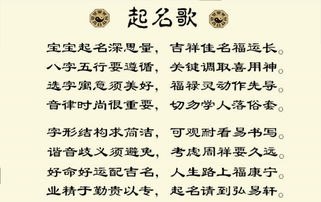 起名歌
宝宝起名深思量，吉祥佳名福运长。
八字五行要遵循，关键调取喜用神。
选字寓意须美好，福禄灵动作先导。
音律时尚很重要，切勿学人落俗套。
字形结构求简洁，可观耐看易书写。
谐音歧义须避免，考虑周祥要久远。
好命好运配吉名，人生路上福康宁。
业精于勤贵以专，起名请到弘易轩。